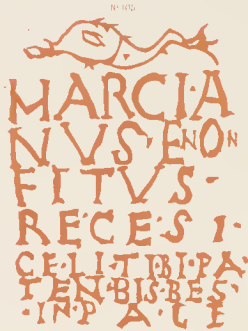 Nº 102
MARCI·A
NVS·ENON
FITVS·
RECES·I·
CE·LI·TIBI·PA·
TEN·BIS·BES
·IN·P A·LE